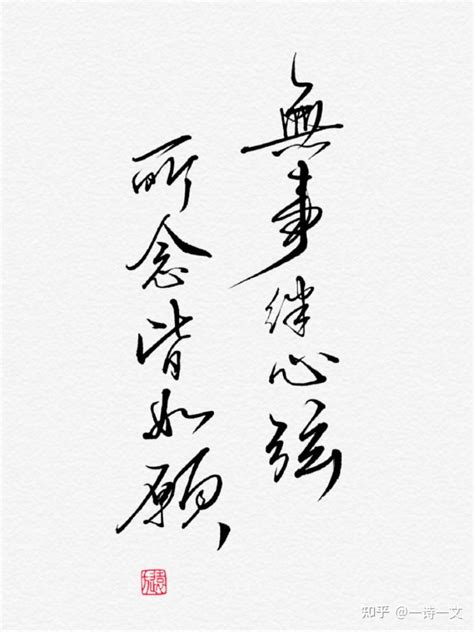 無事絆心弦
所念皆如願，
知乎 @一诗一文